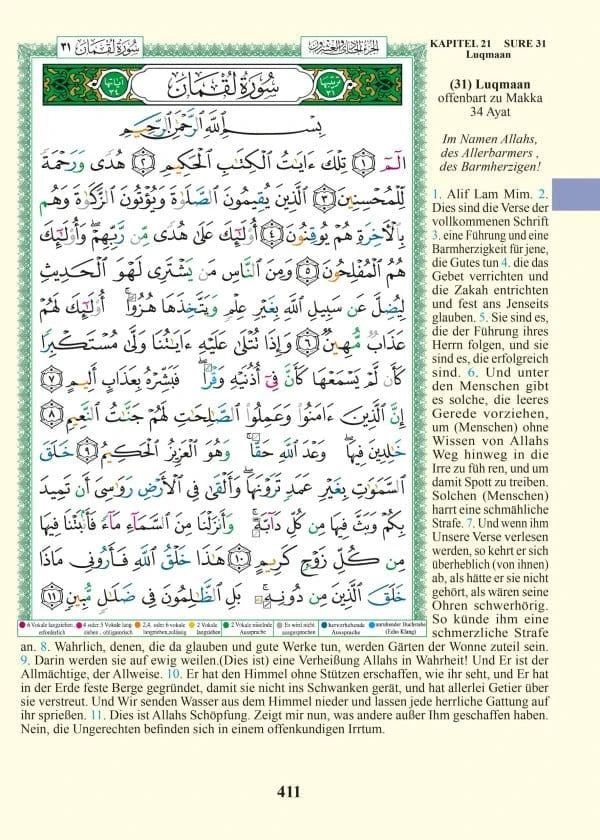 سُورَةُ لُقْمَان ٣١
الجزء الحادي والعشرون
KAPITEL 21 SURE 31
Luqmaan
آياتها ٣٤
سُورَةُ لُقْمَانَ
ترتيبها ٣١
بِسْمِ اللَّهِ الرَّحْمَٰنِ الرَّحِيمِ
الٓمٓ ١ تِلْكَ ءَايَٰتُ الْكِتَٰبِ الْحَكِيمِ ٢ هُدًى وَرَحْمَةً
لِّلْمُحْسِنِينَ ٣ الَّذِينَ يُقِيمُونَ الصَّلَوٰةَ وَيُؤْتُونَ الزَّكَوٰةَ وَهُم
بِالْءَاخِرَةِ هُمْ يُوقِنُونَ ٤ أُو۟لَٰٓئِكَ عَلَىٰ هُدًى مِّن رَّبِّهِمْ ۖ وَأُو۟لَٰٓئِكَ
هُمُ الْمُفْلِحُونَ ٥ وَمِنَ النَّاسِ مَن يَشْتَرِى لَهْوَ الْحَدِيثِ
لِيُضِلَّ عَن سَبِيلِ اللَّهِ بِغَيْرِ عِلْمٍ وَيَتَّخِذَهَا هُزُوًا ۚ أُو۟لَٰٓئِكَ لَهُمْ
عَذَابٌ مُّهِينٌ ٦ وَإِذَا تُتْلَىٰ عَلَيْهِ ءَايَٰتُنَا وَلَّىٰ مُسْتَكْبِرًا
كَأَن لَّمْ يَسْمَعْهَا كَأَنَّ فِىٓ أُذُنَيْهِ وَقْرًا ۖ فَبَشِّرْهُ بِعَذَابٍ أَلِيمٍ ٧
إِنَّ الَّذِينَ ءَامَنُوا۟ وَعَمِلُوا۟ الصَّٰلِحَٰتِ لَهُمْ جَنَّٰتُ النَّعِيمِ ٨
خَٰلِدِينَ فِيهَا ۖ وَعْدَ اللَّهِ حَقًّا ۚ وَهُوَ الْعَزِيزُ الْحَكِيمُ ٩ خَلَقَ
السَّمَٰوَٰتِ بِغَيْرِ عَمَدٍ تَرَوْنَهَا ۖ وَأَلْقَىٰ فِى الْأَرْضِ رَوَٰسِىَ أَن تَمِيدَ
بِكُمْ وَبَثَّ فِيهَا مِن كُلِّ دَآبَّةٍ ۚ وَأَنزَلْنَا مِنَ السَّمَآءِ مَآءً فَأَنۢبَتْنَا فِيهَا
مِن كُلِّ زَوْجٍ كَرِيمٍ ١٠ هَٰذَا خَلْقُ اللَّهِ فَأَرُونِى مَاذَا
خَلَقَ الَّذِينَ مِن دُونِهِۦ ۚ بَلِ الظَّٰلِمُونَ فِى ضَلَٰلٍ مُّبِينٍ ١١
(31) Luqmaan
offenbart zu Makka
34 Ayat
Im Namen Allahs,
des Allerbarmers ,
des Barmherzigen!
1. Alif Lam Mim. 2.
Dies sind die Verse der
vollkommenen Schrift
3. eine Führung und eine
Barmherzigkeit für jene,
die Gutes tun 4. die das
Gebet verrichten und
die Zakah entrichten
und fest ans Jenseits
glauben. 5. Sie sind es,
die der Führung ihres
Herrn folgen, und sie
sind es, die erfolgreich
sind. 6. Und unter
den Menschen gibt
es solche, die leeres
Gerede vorziehen,
um (Menschen) ohne
Wissen von Allahs
Weg hinweg in die
Irre zu füh ren, und um
damit Spott zu treiben.
Solchen (Menschen)
harrt eine schmähliche
Strafe. 7. Und wenn ihm
Unsere Verse verlesen
werden, so kehrt er sich
überheblich (von ihnen)
ab, als hätte er sie nicht
gehört, als wären seine
Ohren schwerhörig.
So künde ihm eine
schmerzliche Strafe
an. 8. Wahrlich, denen, die da glauben und gute Werke tun, werden Gärten der Wonne zuteil sein.
9. Darin werden sie auf ewig weilen.(Dies ist) eine Verheißung Allahs in Wahrheit! Und Er ist der
Allmächtige, der Allweise. 10. Er hat den Himmel ohne Stützen erschaffen, wie ihr seht, und Er hat
in der Erde feste Berge gegründet, damit sie nicht ins Schwanken gerät, und hat allerlei Getier über
sie verstreut. Und Wir senden Wasser aus dem Himmel nieder und lassen jede herrliche Gattung auf
ihr sprießen. 11. Dies ist Allahs Schöpfung. Zeigt mir nun, was andere außer Ihm geschaffen haben.
Nein, die Ungerechten befinden sich in einem offenkundigen Irrtum.
411